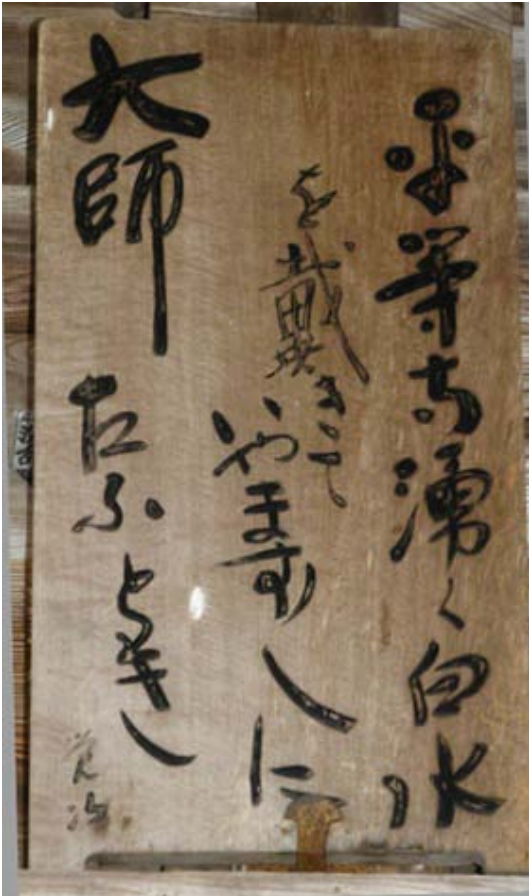 平等寺湧く白水
を戴きて
いやます〱に
大師たふとき